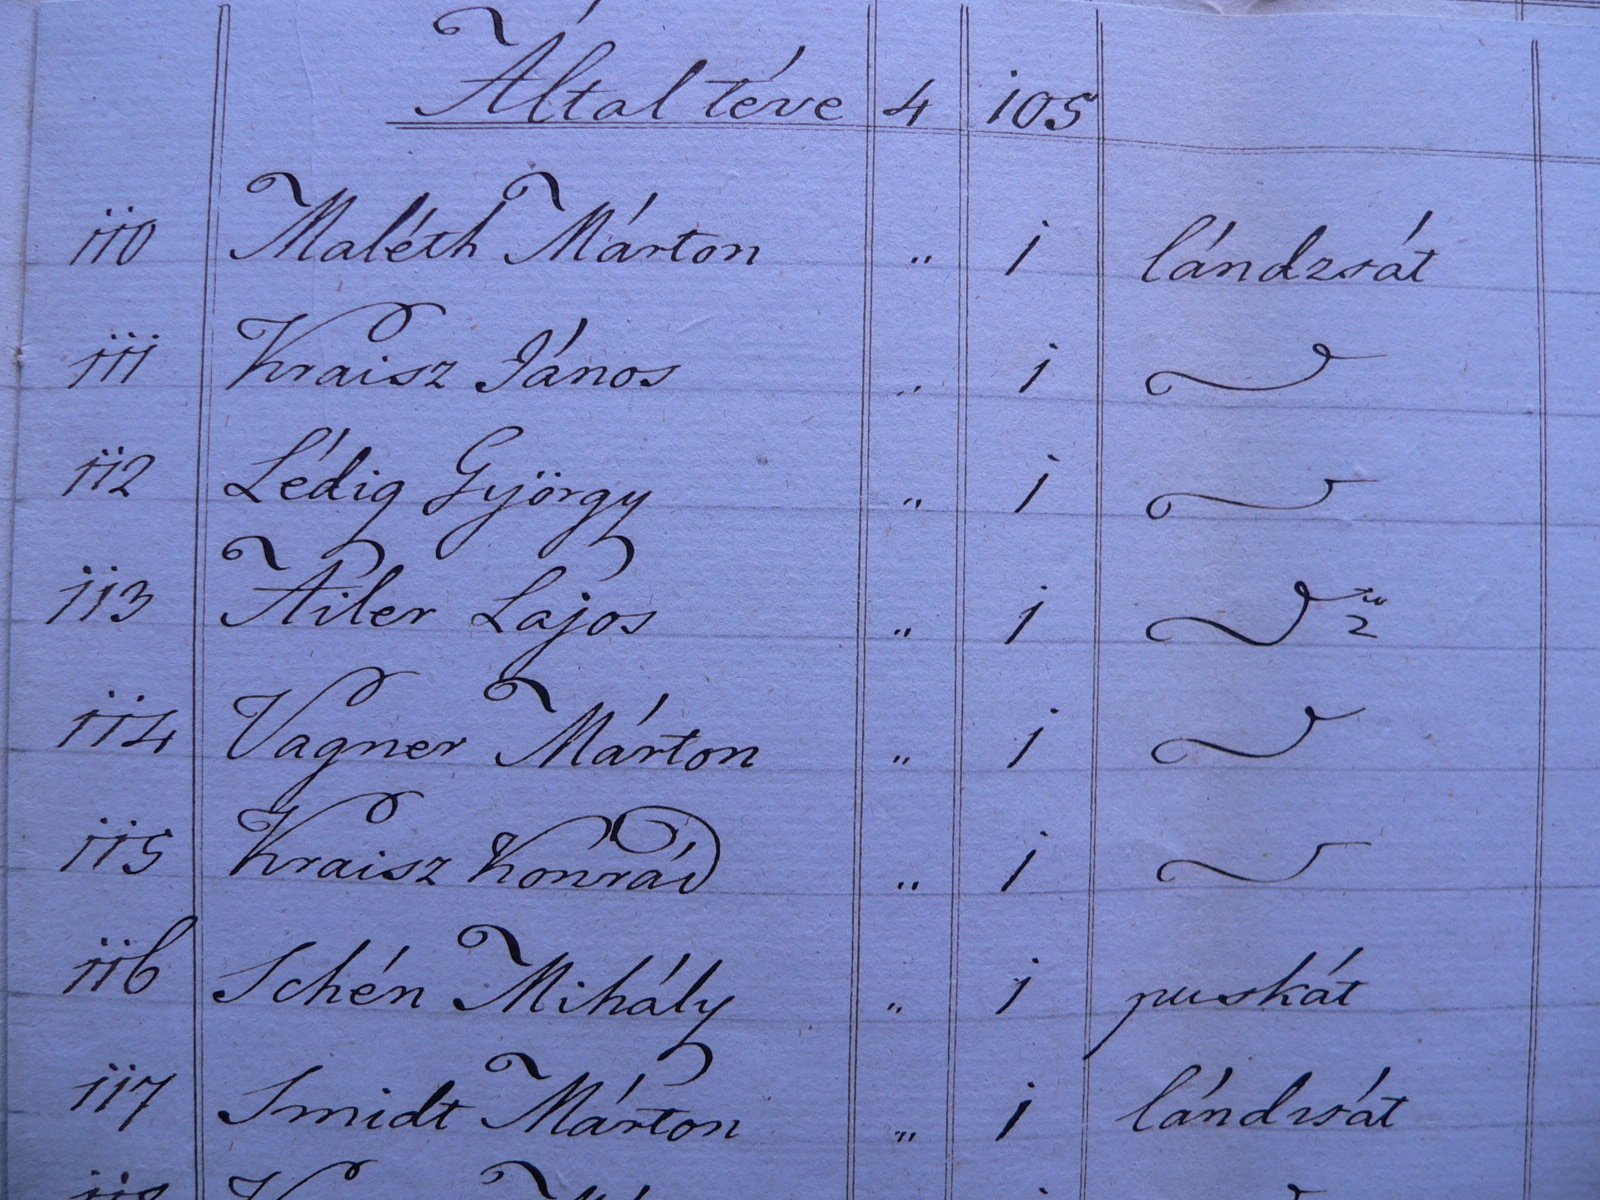 Által téve 4 105
110 Maléth Márton " 1 lándzsát
111 Kraisz János " 1
112 Lédig György " 1
113 Ailer Lajos " 1 2
114 Vagner Márton " 1
115 Kraisz Konrád " 1
116 Schén Mihály " 1 puskát
117 Smidt Márton " 1 lándzsát